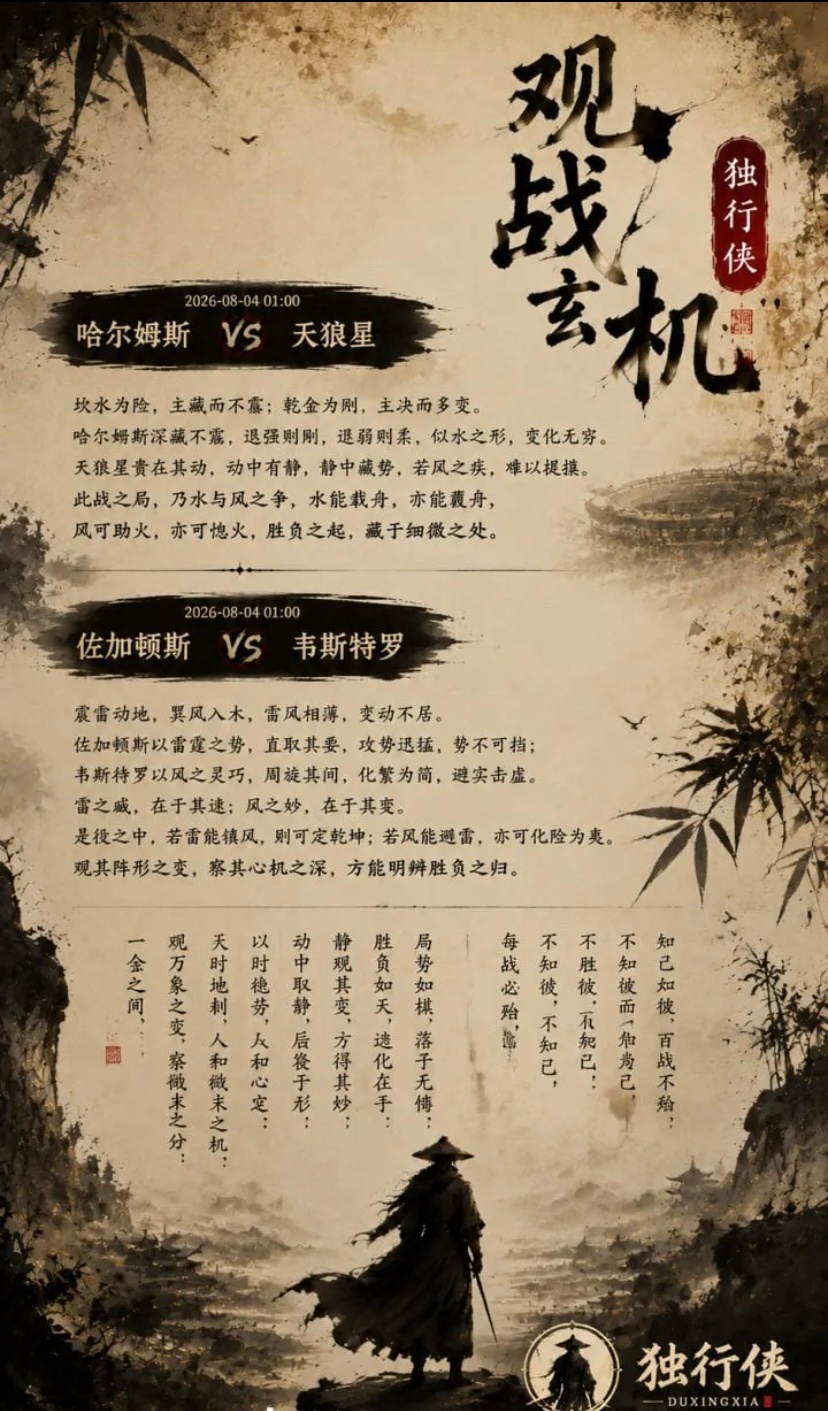 观战玄机
独行侠
2026-08-04 01:00
哈尔姆斯 VS 天狼星
坎水为险，主藏而不露；乾金为刚，主决而多变。
哈尔姆斯深藏不露，退强则刚，退弱则柔，似水之形，变化无穷。
天狼星贵在其动，动中有静，静中藏势，若风之疾，难以捉摸。
此战之局，乃水与风之争，水能载舟，亦能覆舟，
风可助火，亦可熄火，胜负之起，藏于细微之处。
2026-08-04 01:00
佐加顿斯 VS 韦斯特罗
震雷动地，巽风入木，雷风相薄，变动不居。
佐加顿斯以雷霆之势，直取其要，攻势迅猛，势不可挡；
韦斯特罗以风之灵巧，周旋其间，化繁为简，避实击虚。
雷之威，在于其速；风之妙，在于其变。
是役之中，若雷能镇风，则可定乾坤；若风能避雷，亦可化险为夷。
观其阵形之变，察其心机之深，方能明辨胜负之归。
知己知彼，百战不殆；
不知彼而一知己，
不胜彼，不知己；
不知彼，不知己，
每战必殆，
局势如棋，落子无悔；
胜负如天，造化在手；
静观其变，方得其妙；
动中取静，后发于形；
以时 势，人和心定；
天时地利，人和微末之机；
观万象之变，察微末之分；
一念之间，
独行侠
DUXINGXIA